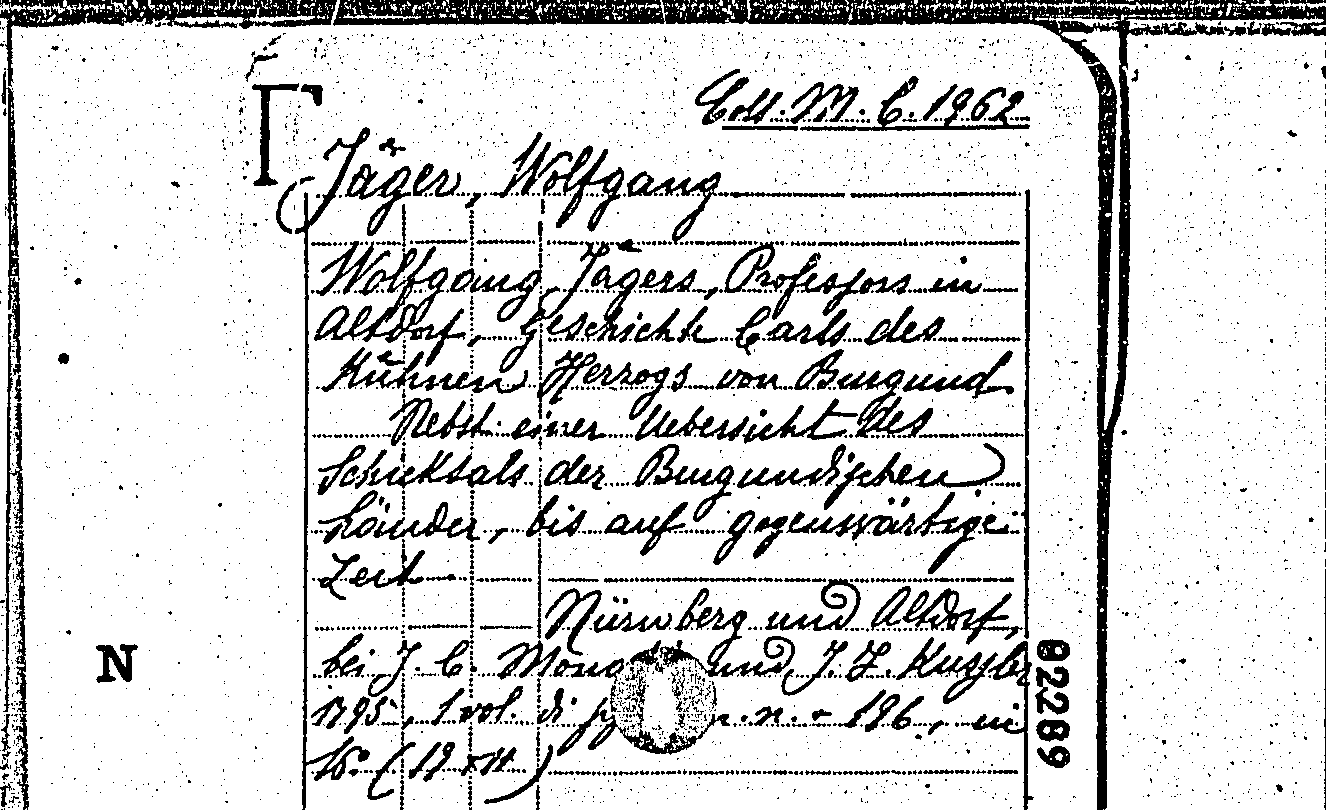 Coll. M. C. 1962
Jäger, Wolfgang
Wolfgang Jägers, Professors in
Altdorf, Geschichte Carls des
Kühnen Herzogs von Burgund
Nebst einer Uebersicht des
Schicksals der Burgundischen
Länder, bis auf gegenwärtige
Zeit
Nürnberg und Altdorf,
bei J. C. und J. Z.
1795, 1 vol. di n. n. - 196, in
16° (19 x 11)
N
02289